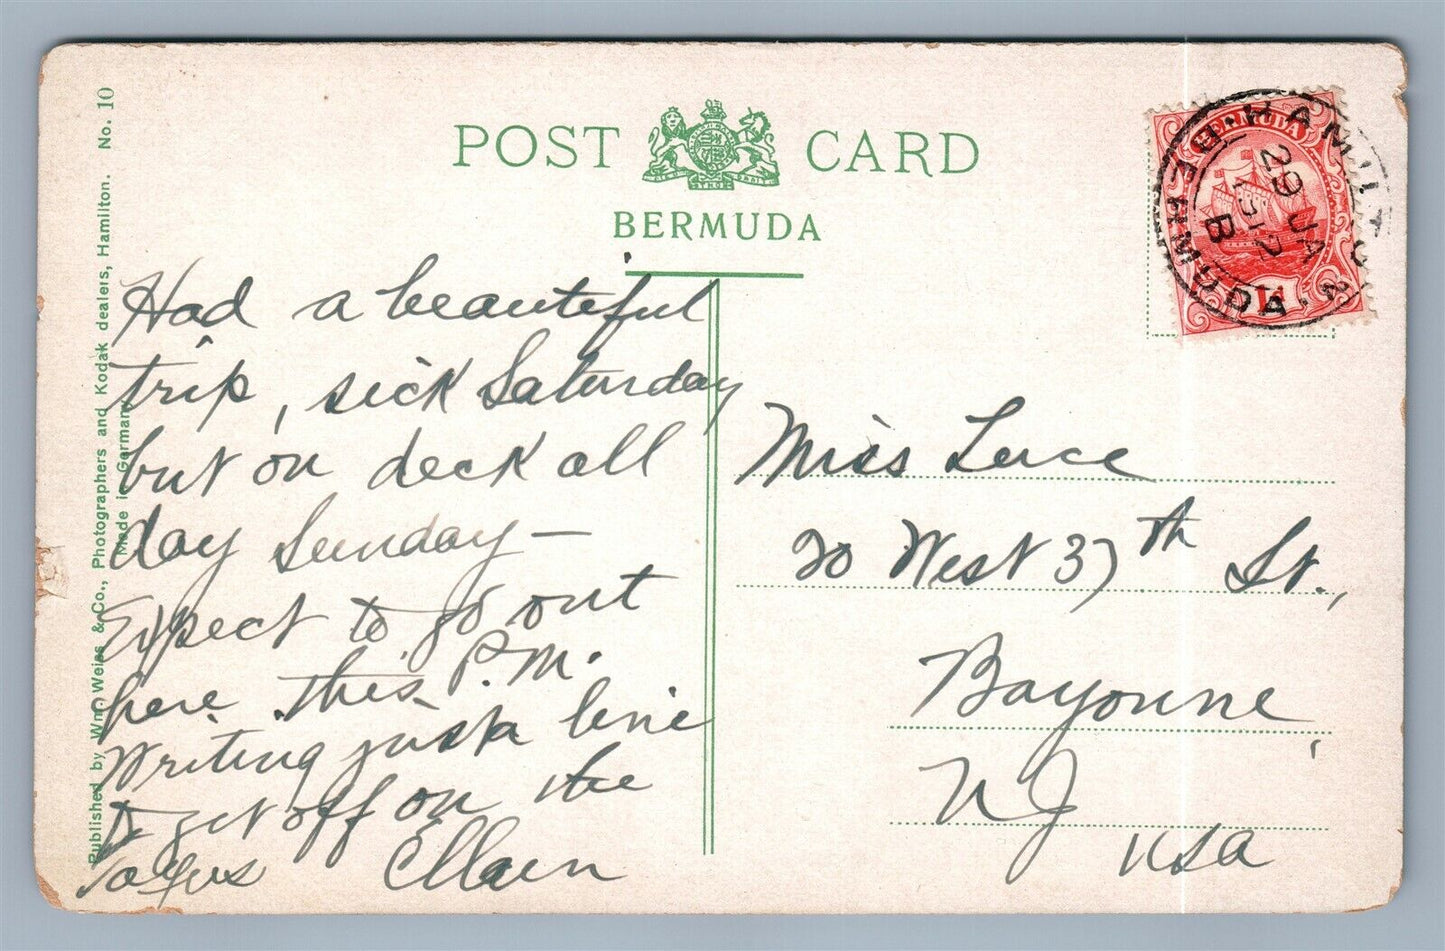 POST CARD
BERMUDA
Published by Wm. Weiss & Co., Photographers and Kodak dealers, Hamilton. No. 10
Made in Germany.
Had a beautiful
trip, sick Saturday
but on deck all
day Sunday —
Expect to go out
here this P.M.
Writing just a line
to get off on the
Ellaen
BERMUDA
1d
HAMILTON
BERMUDA
29 JA
12
B
Miss Luce
20 West 37th St.,
Bayonne,
NJ
USA